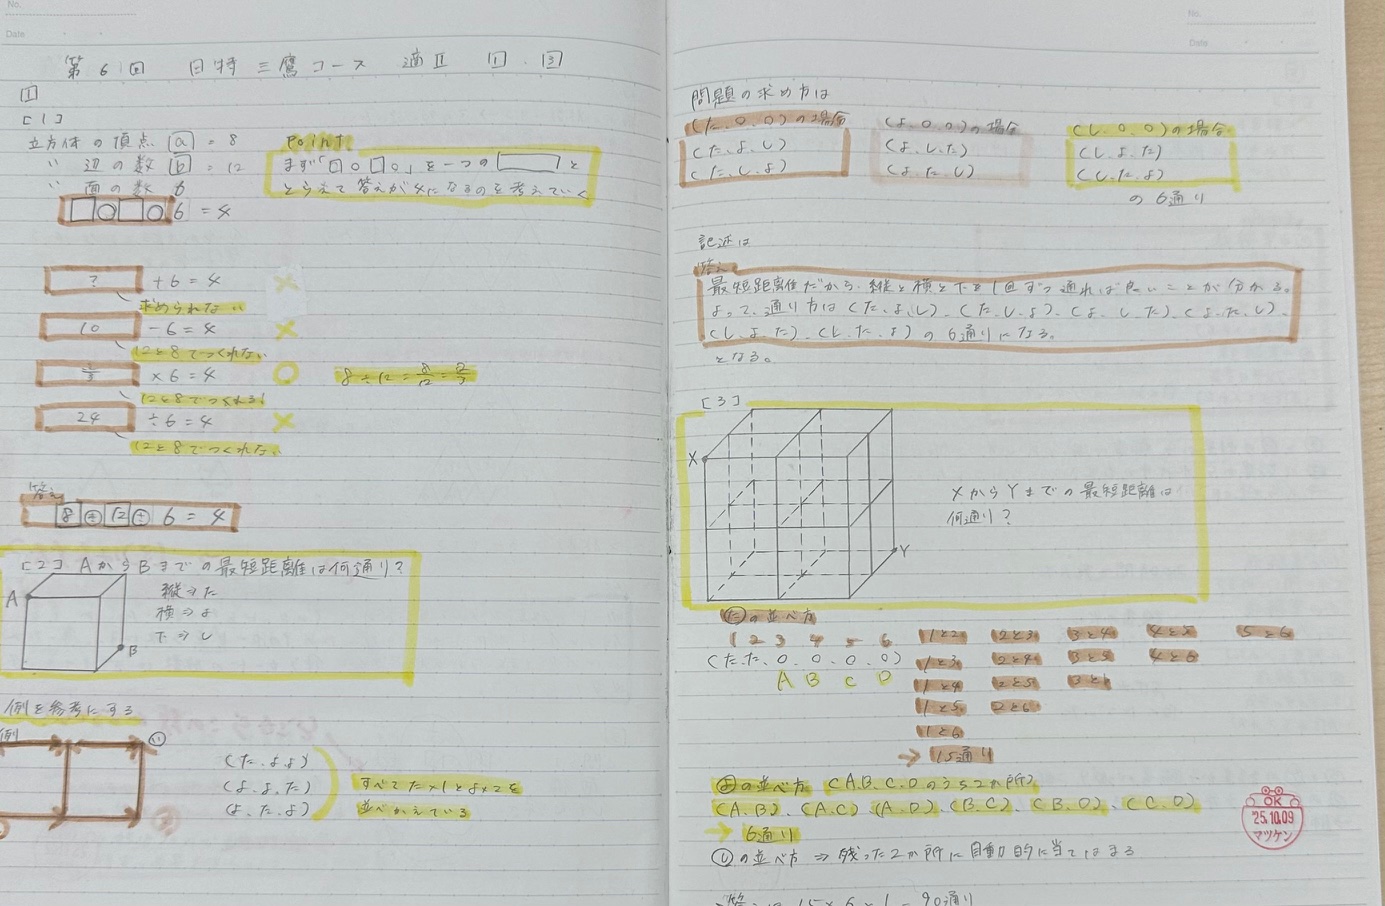 No.
Date
第6回 日特 三鷹コース 適Ⅱ 1 . 3
1
[1]
立方体の頂点 a = 8
〃 辺の数 b = 12
〃 面の数 6
□○□○6 = 4
Point
まず「□○□○」を一つの□と
とらえて答えが4になるのを考えていく
? +6=4 ×
求められない
10 -6=4 ×
12と8でつくれない
2/3 ×6=4 ○ 8÷12=8/12=2/3
12と8でつくれる!
24 ÷6=4 ×
12と8でつくれない
答え
8÷12÷6=4
[2] AからBまでの最短距離は何通り?
A
縦⇒た
横⇒よ
下⇒し
B
例を参考にする
例
(い)
(た、よ、よ)
(よ、よ、た)
(よ、た、よ)
すべてた×1とよ×2を
並べかえている
No.
Date
問題の求め方は
(た、○、○)の場合 (よ、○、○)の場合 (し、○、○)の場合
(た、よ、し) (よ、し、た) (し、よ、た)
(た、し、よ) (よ、た、し) (し、た、よ)
の6通り
記述は
答え
最短距離だから、縦と横と下を1回ずつ通れば良いことが分かる。
よって、通り方は(た、よ、し)、(た、し、よ)、(よ、し、た)、(よ、た、し)、
(し、よ、た)、(し、た、よ)の6通りになる。
となる。
[3]
X
Y
XからYまでの最短距離は
何通り?
たの並べ方
1 2 3 4 5 6
(た、た、○、○、○、○)
A B C D
1と2 2と3 3と4 4と5 5と6
1と3 2と4 3と5 4と6
1と4 2と5 3と6
1と5 2と6
1と6
→ 15通り
よの並べ方 (A、B、C、Dのうち2か所)
(A、B)、(A、C)、(A、D)、(B、C)、(B、D)、(C、D)
→ 6通り
しの並べ方 ⇒ 残った2か所に自動的に当てはまる
答えは 15×6×1=90通り
OK
25.10.09
マツケン